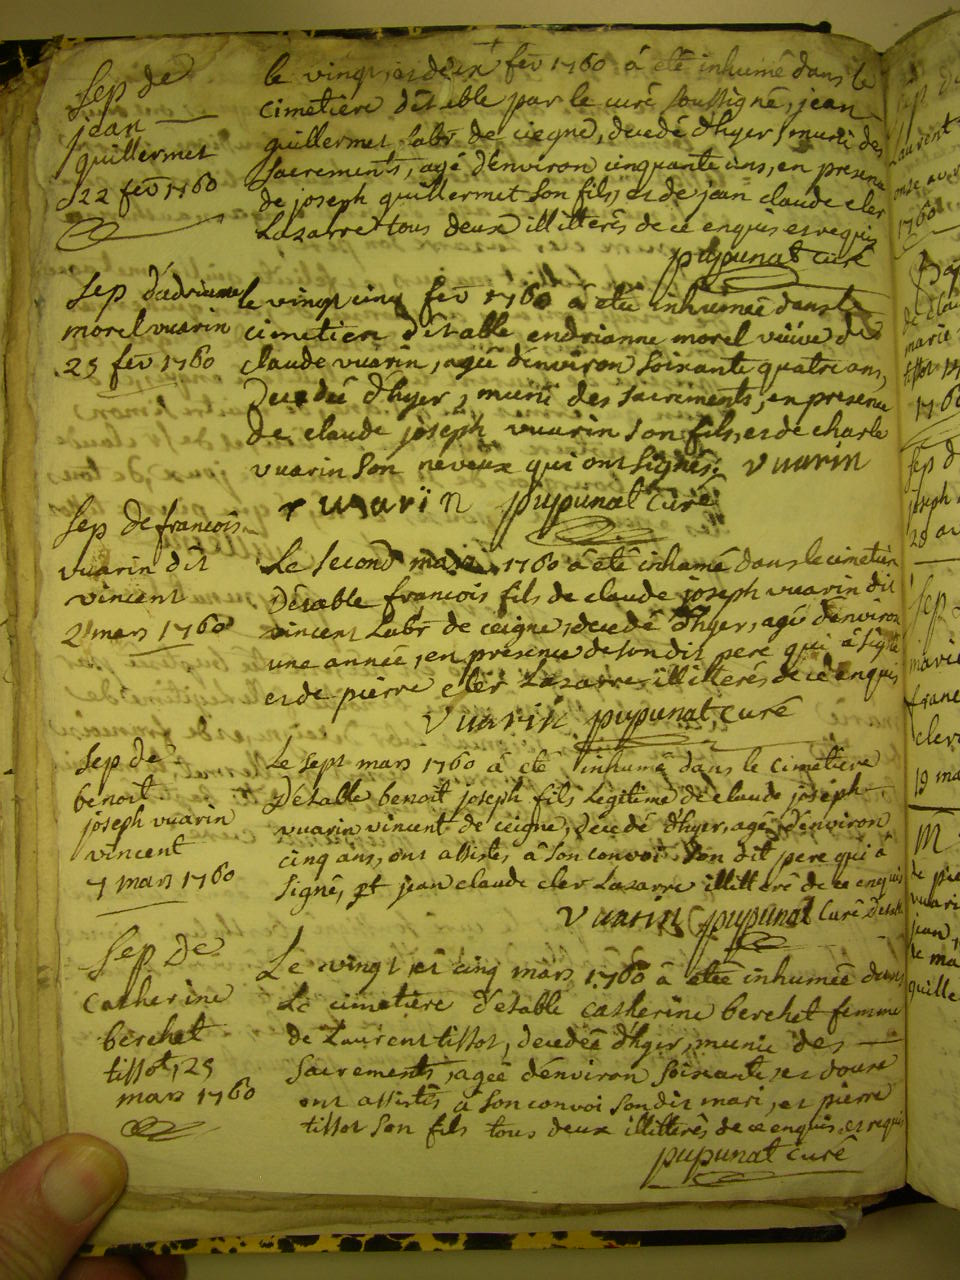 Sep de
jean
guillermet
22 fev 1760
le vingt et deux fev 1760 â êtê inhumê dans le
cimetiere d'êtable par le curê soussignê, jean
guillermet labr de ciegne, decedê d'hyer, muni des
sacrements, agê d'environ cinquante ans, en presence
de joseph guillermet son fils, et de jean claude cler
Lazarre tous deux illitterês de ce enquis et requis
pupunat curê
Sep d'adrianne
morel vuarin
25 fev 1760
le vingt cinq fev 1760 â êtê inhumêe dans le
cimetiere d'êtable endrianne morel veuve de
claude vuarin, agêe d'environ soixante quatre ans,
Decedêe d'hyer, munie des sacriments, en presence
de claude joseph vuarin son fils, et de charle
vuarin son neveux qui ont signês. vuarin
vuarin pupunat curê
Sep de francois
vuarin dit
vincent
2 mars 1760
Le second mars 1760 â êtê inhumê dans le cimetier
Détable francois fils de claude joseph vuarin dit
vincent Labr de ceigne, decedê d'hyer, agê d'environ
une annêe, en prêsence de son dit pere qui â signê
et de pierre cler Lazarre illitterês de ce enquis
vuarin pupunat curê
Sep de
benoit
joseph vuarin
vincent
7 mars 1760
Le sept mars 1760 â êtê inhumê dans le cimetiere
Détable benoit joseph fils Légitime de claude joseph
vuarin vincent de ceigne, dêcedê d'hyer, agê d'environ
cinq ans, ont assistês â son convoi son dit pere qui â
signê, et jean claude cler Lazarre illittêrê de ce enquis
vuarin pupunat curê
Sep De
Catherine
berchet
tissot, 25
mars 1760
Le vingt et cinq mars 1760 â êtêe inhumêe dans
Le cimetiêre d'êtable catherine berchet femme
de Laurent tissot, decedêe d'hyer, munie des
sacrements, agêe d'environ soixante et douze
ont assistês â son convoi son dit mari, et pierre
tissot son fils tous deux illitterês de ce enquis et requis
pupunat curê